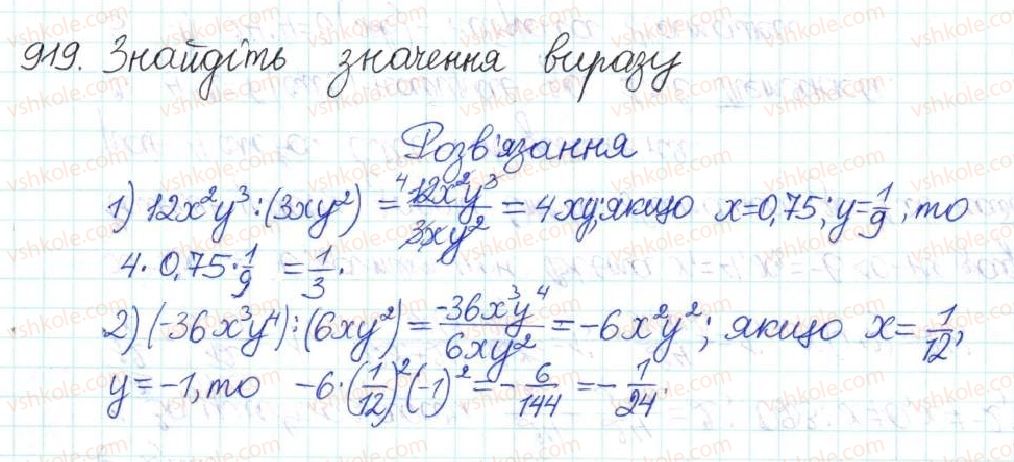 919. Знайдіть значення виразу
Розв'язання
1) 12x²y³ : (3xy²) = ⁴12x²y³/3xy² = 4xy; якщо x=0,75; y=1/9, то
4 · 0,75 · 1/9 = 1/3.
2) (-36x³y⁴) : (6xy²) = -36x³y⁴/6xy² = -6x²y²; якщо x = 1/12,
y = -1, то -6·(1/12)²(-1)² = -6/144 = -1/24.